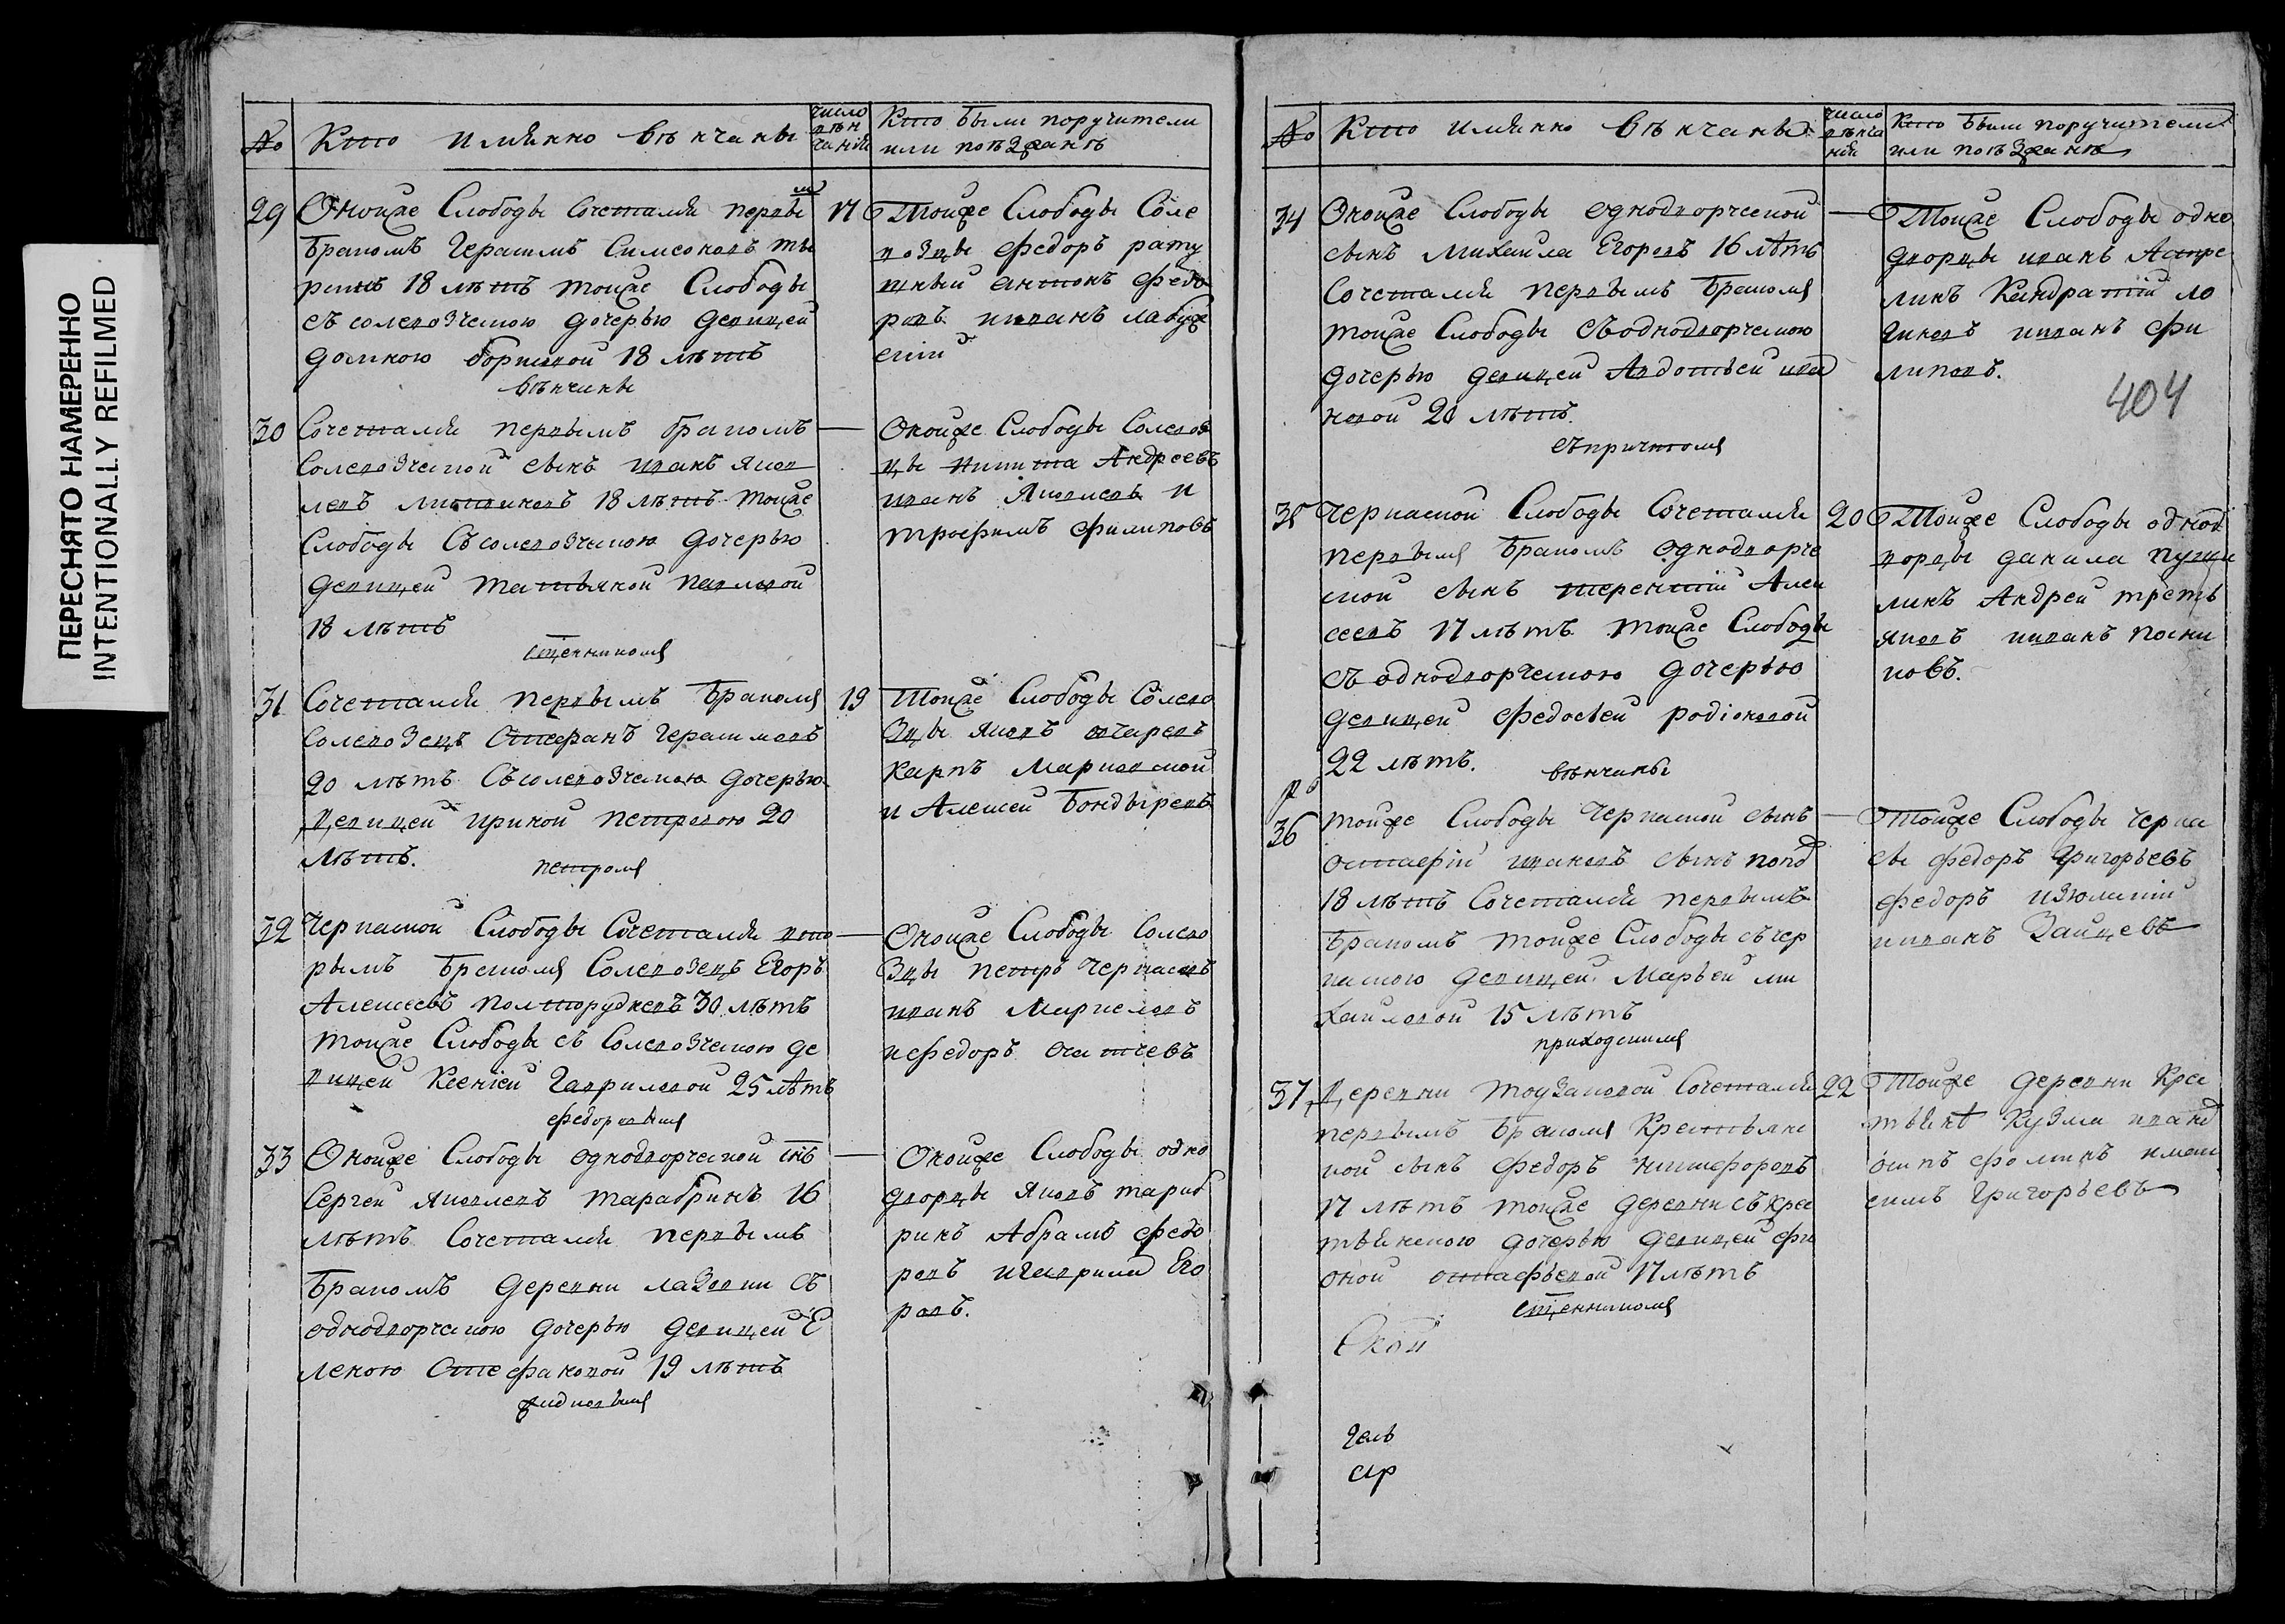 ПЕРЕСНЯТО НАМЕРЕННО
INTENTIONALLY REFILMED
№ Кто имянно венчаны
число венчаний
Кто были поручители
или поезжанѣ
29 Оноиже Слободы сочетался первы
мъ
бракомъ Герасимъ Симеоновъ
18 лѣтъ тоиже Слободы
съ солевозческою дочерью девицеи
домною борисовой 18 лѣтъ
венчаны
17 Тоиже Слободы Соле
возцы федоръ рату
шныи антонъ федо
ровъ иванъ
30 Сочетался первымъ бракомъ
Солевозческой сынъ иванъ яков
левъ 18 лѣтъ тоиже
Слободы Съ солевозческою дочерью
девицей татьяной павловой
18 лѣтъ
священникомъ
Оноиже Слободы Солевоз
цы никита Андреевъ
иванъ Яковлевъ и
трофимъ филиповъ
31 Сочетался первымъ бракомъ
Солевозецъ Стефанъ Герасимовъ
20 лѣтъ Съ солевозческою дочерью
девицей ириной петровою 20
лѣтъ.
петромъ
19 Тоиже Слободы Солево
зцы яковъ
карпъ
и Алексей Бондыревъ
32 Черкаской Слободы Сочетался вто
рымъ бракомъ Солевозецъ Егоръ
Алексеевъ 30 лѣтъ
тоиже Слободы съ Солевозческою де
вицей Ксениеи Гавриловой 25 лѣтъ
федоровымъ
Оноиже Слободы Солево
зцы петръ Черкасовъ
иванъ
и федоръ
33 Оноиже Слободы однодворческой снъ
Сергей Яковлевъ тарабринъ 16
лѣтъ Сочетался первымъ
бракомъ деревни лазовки съ
однодворческою дочерью девицей Е
леною Стефановой 19 лѣтъ
Оноиже Слободы одно
дворцы яковъ тараб
ринъ Абрамъ федо
ровъ и Гаврила Его
ровъ.
№ Кто имянно венчаны
число венчаний
Кто были поручители
или поезжанѣ
34 Оноиже Слободы однодворческой
сынъ михайла Егоровъ 16 лѣтъ
Сочетался первымъ бракомъ
тоиже Слободы Съ однодворческою
дочерью девицей Авдотьей ива
новой 20 лѣтъ.
съ причтомъ
Тоиже Слободы одно
дворцы иванъ
линъ Кандратий ло
гиновъ иванъ фи
липовъ.
404
35 Черкаской Слободы Сочетался
первымъ бракомъ однодворче
ской сынъ терентий Алек
сеевъ 17 лѣтъ тоиже Слободы
съ однодворческою дочерью
девицей федосьей родионовой
22 лѣтъ.
венчаны
20 Тоиже Слободы однод
ворцы данила
линъ Андрей треть
яковъ иванъ посни
ковъ.
36 тоиже Слободы Черкаской сынъ
остафий ивановъ сынъ
18 лѣтъ Сочетался первымъ
бракомъ тоиже Слободы съ чер
каскою девицей Марьей ми
хайловой 15 лѣтъ
приходскимъ
Тоиже Слободы черка
сы федоръ Григорьевъ
федоръ
иванъ Зайцевъ
37 Деревни Сочетался
первымъ бракомъ Крестьянс
кой сынъ федоръ никифоровъ
17 лѣтъ тоиже деревни съ крес
тьянскою дочерью девицей фи
оной остафьевой 17 лѣтъ
священникомъ
22 Тоиже деревни Крес
тьянѣ Кузма
осипъ фоминъ и мак
симъ Григорьевъ